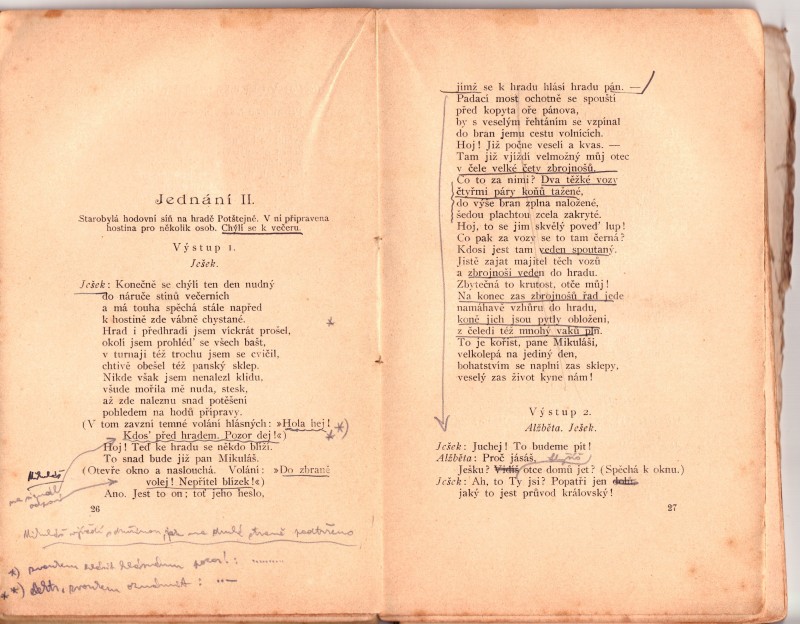 Jednání II.
Starobylá hodovní síň na hradě Potštejně. V ní připravena
hostina pro několik osob. Chýlí se k večeru.
Výstup 1.
Ješek.
Ješek: Konečně se chýlí ten den nudný
do náruče stínů večerních
a má touha spěchá stále napřed
k hostině zde vábně chystané.
Hrad i předhradí jsem víckrát prošel,
okolí jsem prohléd' se všech bašt,
v turnaji též trochu jsem se cvičil,
chtivě obešel též panský sklep.
Nikde však jsem nenalezl klidu,
všude mořila mě nuda, stesk,
až zde naleznu snad potěšení
pohledem na hodů přípravy.
(V tom zavzní temné volání hlásných: »Hola hej!
Kdos' před hradem. Pozor dej!«)
Hoj! Teď ke hradu se někdo blíží.
To snad bude již pan Mikuláš.
(Otevře okno a naslouchá. Volání: »Do zbraně
volej! Nepřítel blízek!«)
Ano. Jest to on; toť jeho heslo,
26
jímž se k hradu hlásí hradu pán. —
Padací most ochotně se spouští
před kopyta oře pánova,
by s veselým řehtáním se vzpínal
do bran jemu cestu volnících.
Hoj! Již počne veselí a kvas. —
Tam již vjíždí velmožný můj otec
v čele velké čety zbrojnošů.
Co to za nimi? Dva těžké vozy
čtyřmi páry koňů tažené,
do výše bran zplna naložené,
šedou plachtou zcela zakryté.
Hoj, to se jim skvělý poveď' lup!
Co pak za vozy se to tam černá?
Kdosi jest tam veden spoutaný.
Jistě zajat majitel těch vozů
a zbrojnoši veden do hradu.
Zbytečná to krutost, otče můj!
Na konec zas zbrojnošů řad jede
namáhavě vzhůru do hradu,
koně jich jsou pytly obloženi,
z čeledi též mnohý vaků pln.
To je kořist, pane Mikuláši,
velkolepá na jediný den,
bohatstvím se naplní zas sklepy,
veselý zas život kyne nám!
Výstup 2.
Alžběta. Ješek.
Ješek: Juchej! To budeme pít!
Alžběta: Proč jásáš,
Ješku? Vidíš otce domů jet? (Spěchá k oknu.)
Ješek: Ah, to Ty jsi? Popatři jen dolů:
jaký to jest průvod královský!
27